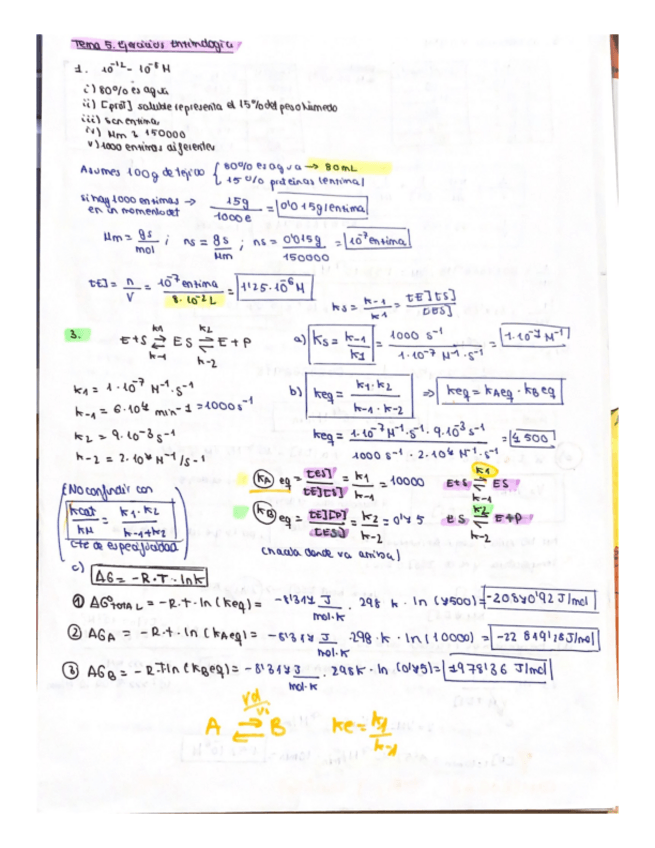 Tema 5. Ejercicios Enzimología
1. 10⁻¹² - 10⁻⁸ M
i) 80% es agua
ii) [prot] soluble representa el 15% del peso húmedo
iii) son enzimas
iv) Mm = 150000
v) 1000 enzimas diferentes
Asumes 100g de tejido { 80% es agua → 80mL
15% proteinas (enzima)
si hay 1000 enzimas → en un momento det 15g / 1000e = 0'015g/enzima
Mm = gs/mol ; ns = gs/Mm ; ns = 0'015g / 150000 = 10⁻⁷ enzima
[E] = n/V = 10⁻⁷ enzima / 8·10⁻² L = 1'25·10⁻⁶ M
ks = k-1/k1 = [E][S]/[ES]
3. E+S ⇌ ES ⇌ E+P
k1 k2
k-1 k-2
a) Ks = k-1/k1 = 1000 s⁻¹ / 1·10⁻⁷ M⁻¹·s⁻¹ = 1·10⁻⁷ M⁻¹
k1 = 1·10⁻⁷ M⁻¹·s⁻¹
k-1 = 6·10⁴ min-1 = 1000s⁻¹
k2 = 9·10⁻³ s⁻¹
k-2 = 2·10⁴ M⁻¹/s⁻¹
b) keq = k1·k2 / k-1·k-2 ⇒ keq = kAeq · kBeq
keq = 1·10⁻⁷ M⁻¹·s⁻¹ · 9·10⁻³ s⁻¹ / 1000 s⁻¹ · 2·10⁴ M⁻¹·s⁻¹ = 4500
(KA) eq = [ES]/[E][S] = k1/k-1 = 10000 E+S ⇌ ES
k1
k-1
(KB) eq = [E][P]/[ES] = k2/k-2 = 0'45 ES ⇌ E+P
k2
k-2
(hacia donde va arriba)
(No confundir con
kcat/kM = k1·k2 / k-1+k2
cte de especificidad)
c) ΔG = -R·T·lnk
① ΔG°TOTAL = -R·t·ln(keq) = -8'314 J/mol·k · 298 k · ln(4500) = -20840'92 J/mol
② ΔGA = -R·t·ln(kAeq) = -8'314 J/mol·k · 298·k·ln(10000) = -22 819'18 J/mol
③ ΔGB = -R·T ln(kBeq) = -8'314 J/mol·k · 298k·ln(0'45) = 1978'36 J/mol
vd/vi
A ⇌ B ke = k1/k-1